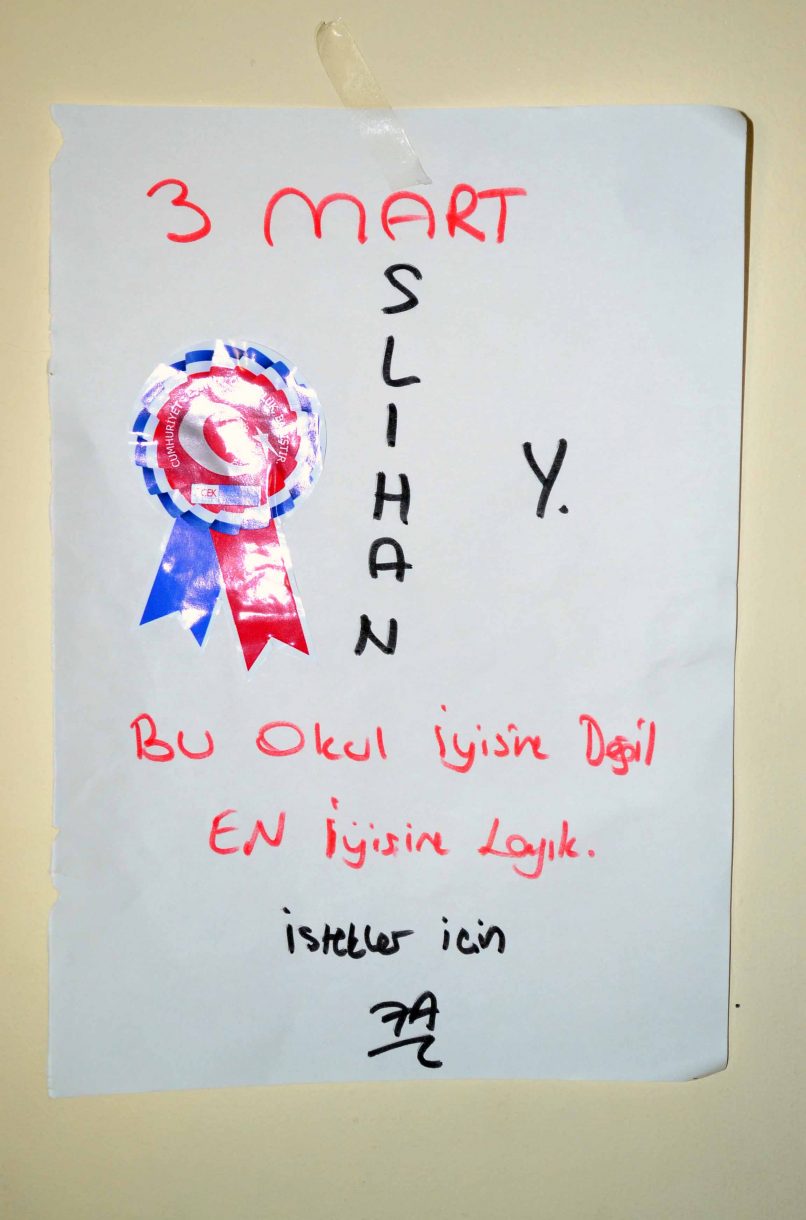 3 MART
S
L
I
H
A
N
Y.
CUMHURİYET
BU Okul İyisine Değil
EN İyisine Layık.
istekler için
7A